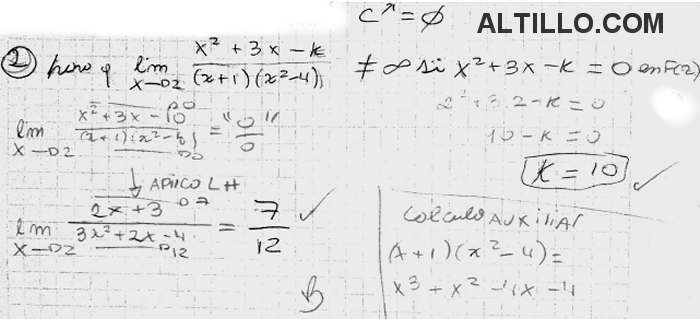 C↗ = ∅
ALTILLO.COM
② pero q lim x→2 (x² + 3x - k) / ((x+1)(x²-4)) ≠ ∞ si x²+3x-k = 0 en F(2)
2²+3.2-k = 0
10-k = 0
K = 10 ✓
lim x→2 (x²+3x-10) / ((x+1)(x²-4)) →0 →0 = "0/0"
↓ APLICO LH
lim x→2 (2x+3) / (3x²+2x-4) →7 →12 = 7/12 ✓
Calculo AUXiliAr
(x+1)(x²-4) =
x³ + x² - 4x - 4
B